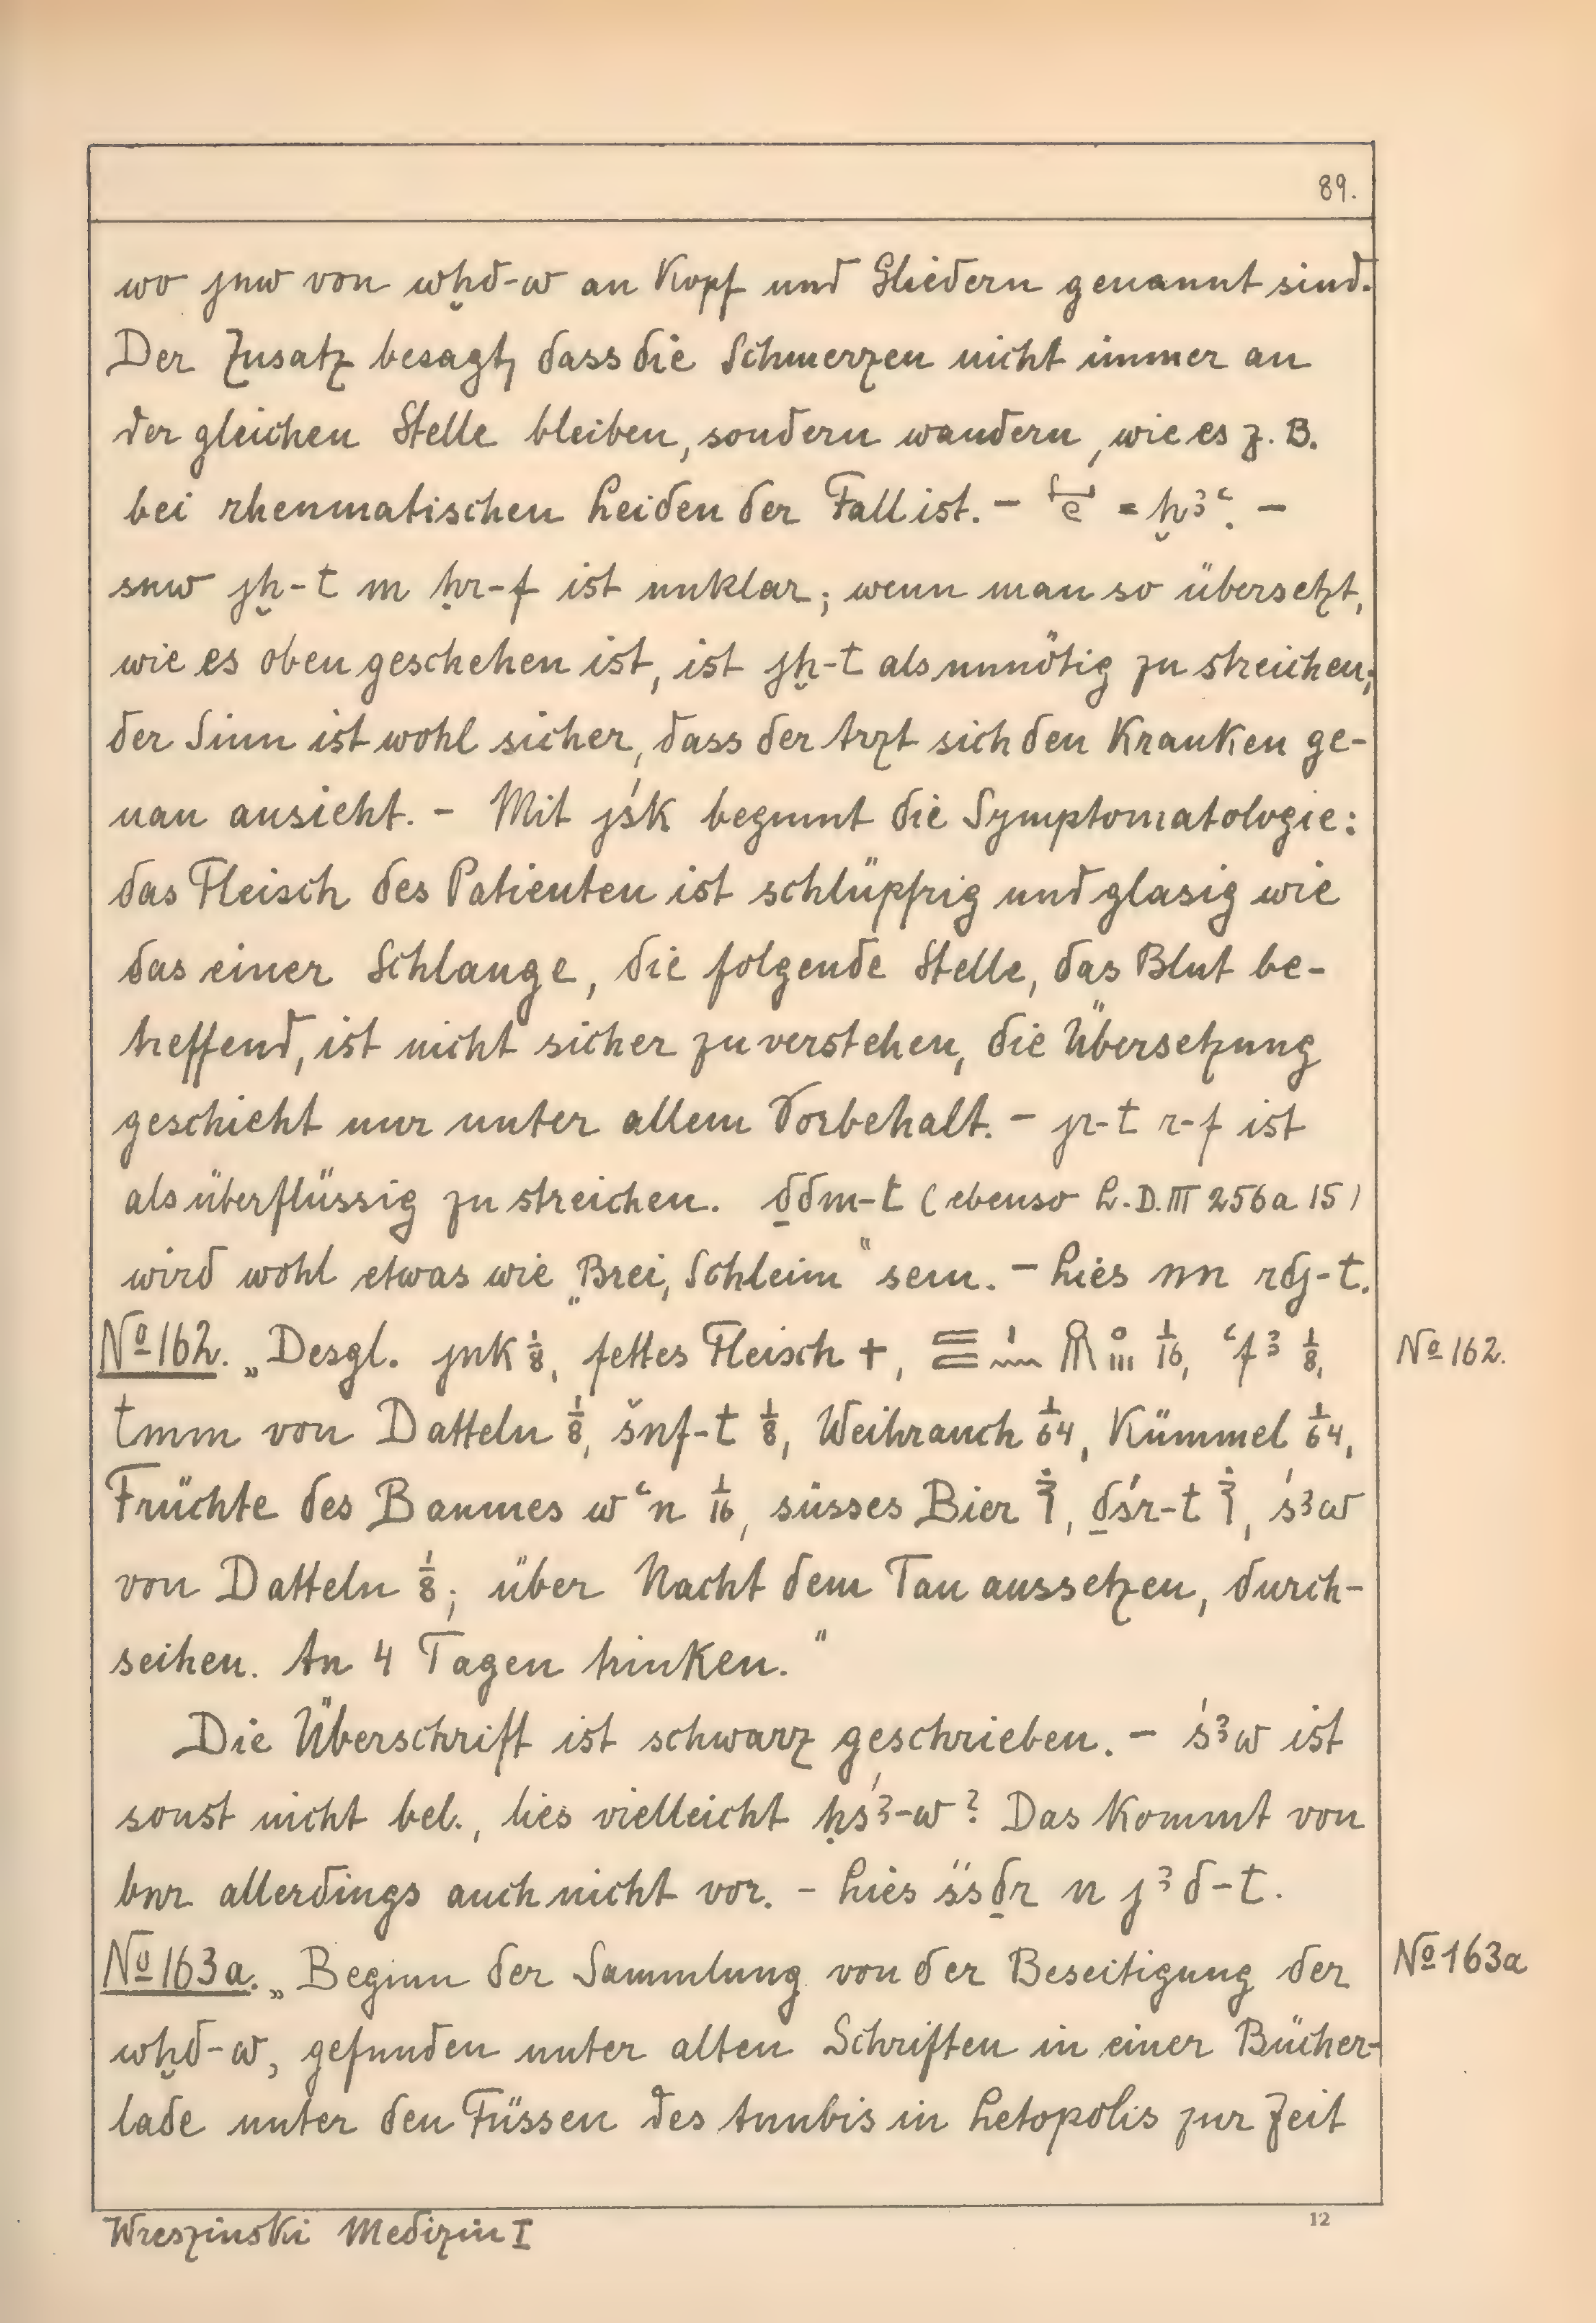 89.
wo jnw von wẖd-w an Kopf und Gliedern genannt sind.
Der Zusatz besagt, dass die Schmerzen nicht immer an
der gleichen Stelle bleiben, sondern wandern, wie es z. B.
bei rheumatischen Leiden der Fall ist. - = ẖꜣꜥ. -
snw jẖ-t m ḥr-f ist unklar; wenn man so übersetzt,
wie es oben geschehen ist, ist jẖ-t als unnötig zu streichen;
der Sinn ist wohl sicher, dass der Arzt sich den Kranken ge-
nau ansieht. - Mit jśk beginnt die Symptomatologie:
das Fleisch des Patienten ist schlüpfrig und glasig wie
das einer Schlange, die folgende Stelle, das Blut be-
treffend, ist nicht sicher zu verstehen, die Übersetzung
geschieht nur unter allem Vorbehalt. - jr-t r-f ist
als überflüssig zu streichen. ḏdm-t (ebenso L.D. III 256a 15)
wird wohl etwas wie „Brei, Schleim" sein. - Lies nn rdj-t.
No 162. „Desgl. jnk 1/8, fettes Fleisch +, 1/16, ꜥfꜣ 1/8, No 162.
tmm von Datteln 1/8, šnf-t 1/8, Weihrauch 1/64, Kümmel 1/64,
Früchte des Baumes wꜥn 1/16, süsses Bier, ḏśr-t, śꜣw
von Datteln 1/8; über Nacht dem Tau aussetzen, durch-
seihen. An 4 Tagen trinken."
Die Überschrift ist schwarz geschrieben. - śꜣw ist
sonst nicht bel., lies vielleicht ḥśꜣ-w? Das kommt von
bnr allerdings auch nicht vor. - Lies śsḏr n jꜣd-t.
No 163a. „Beginn der Sammlung von der Beseitigung der No 163a
wẖd-w, gefunden unter alten Schriften in einer Bücher-
lade unter den Füssen des Anubis in Letopolis zur Zeit
Wreszinski Medizin I 12